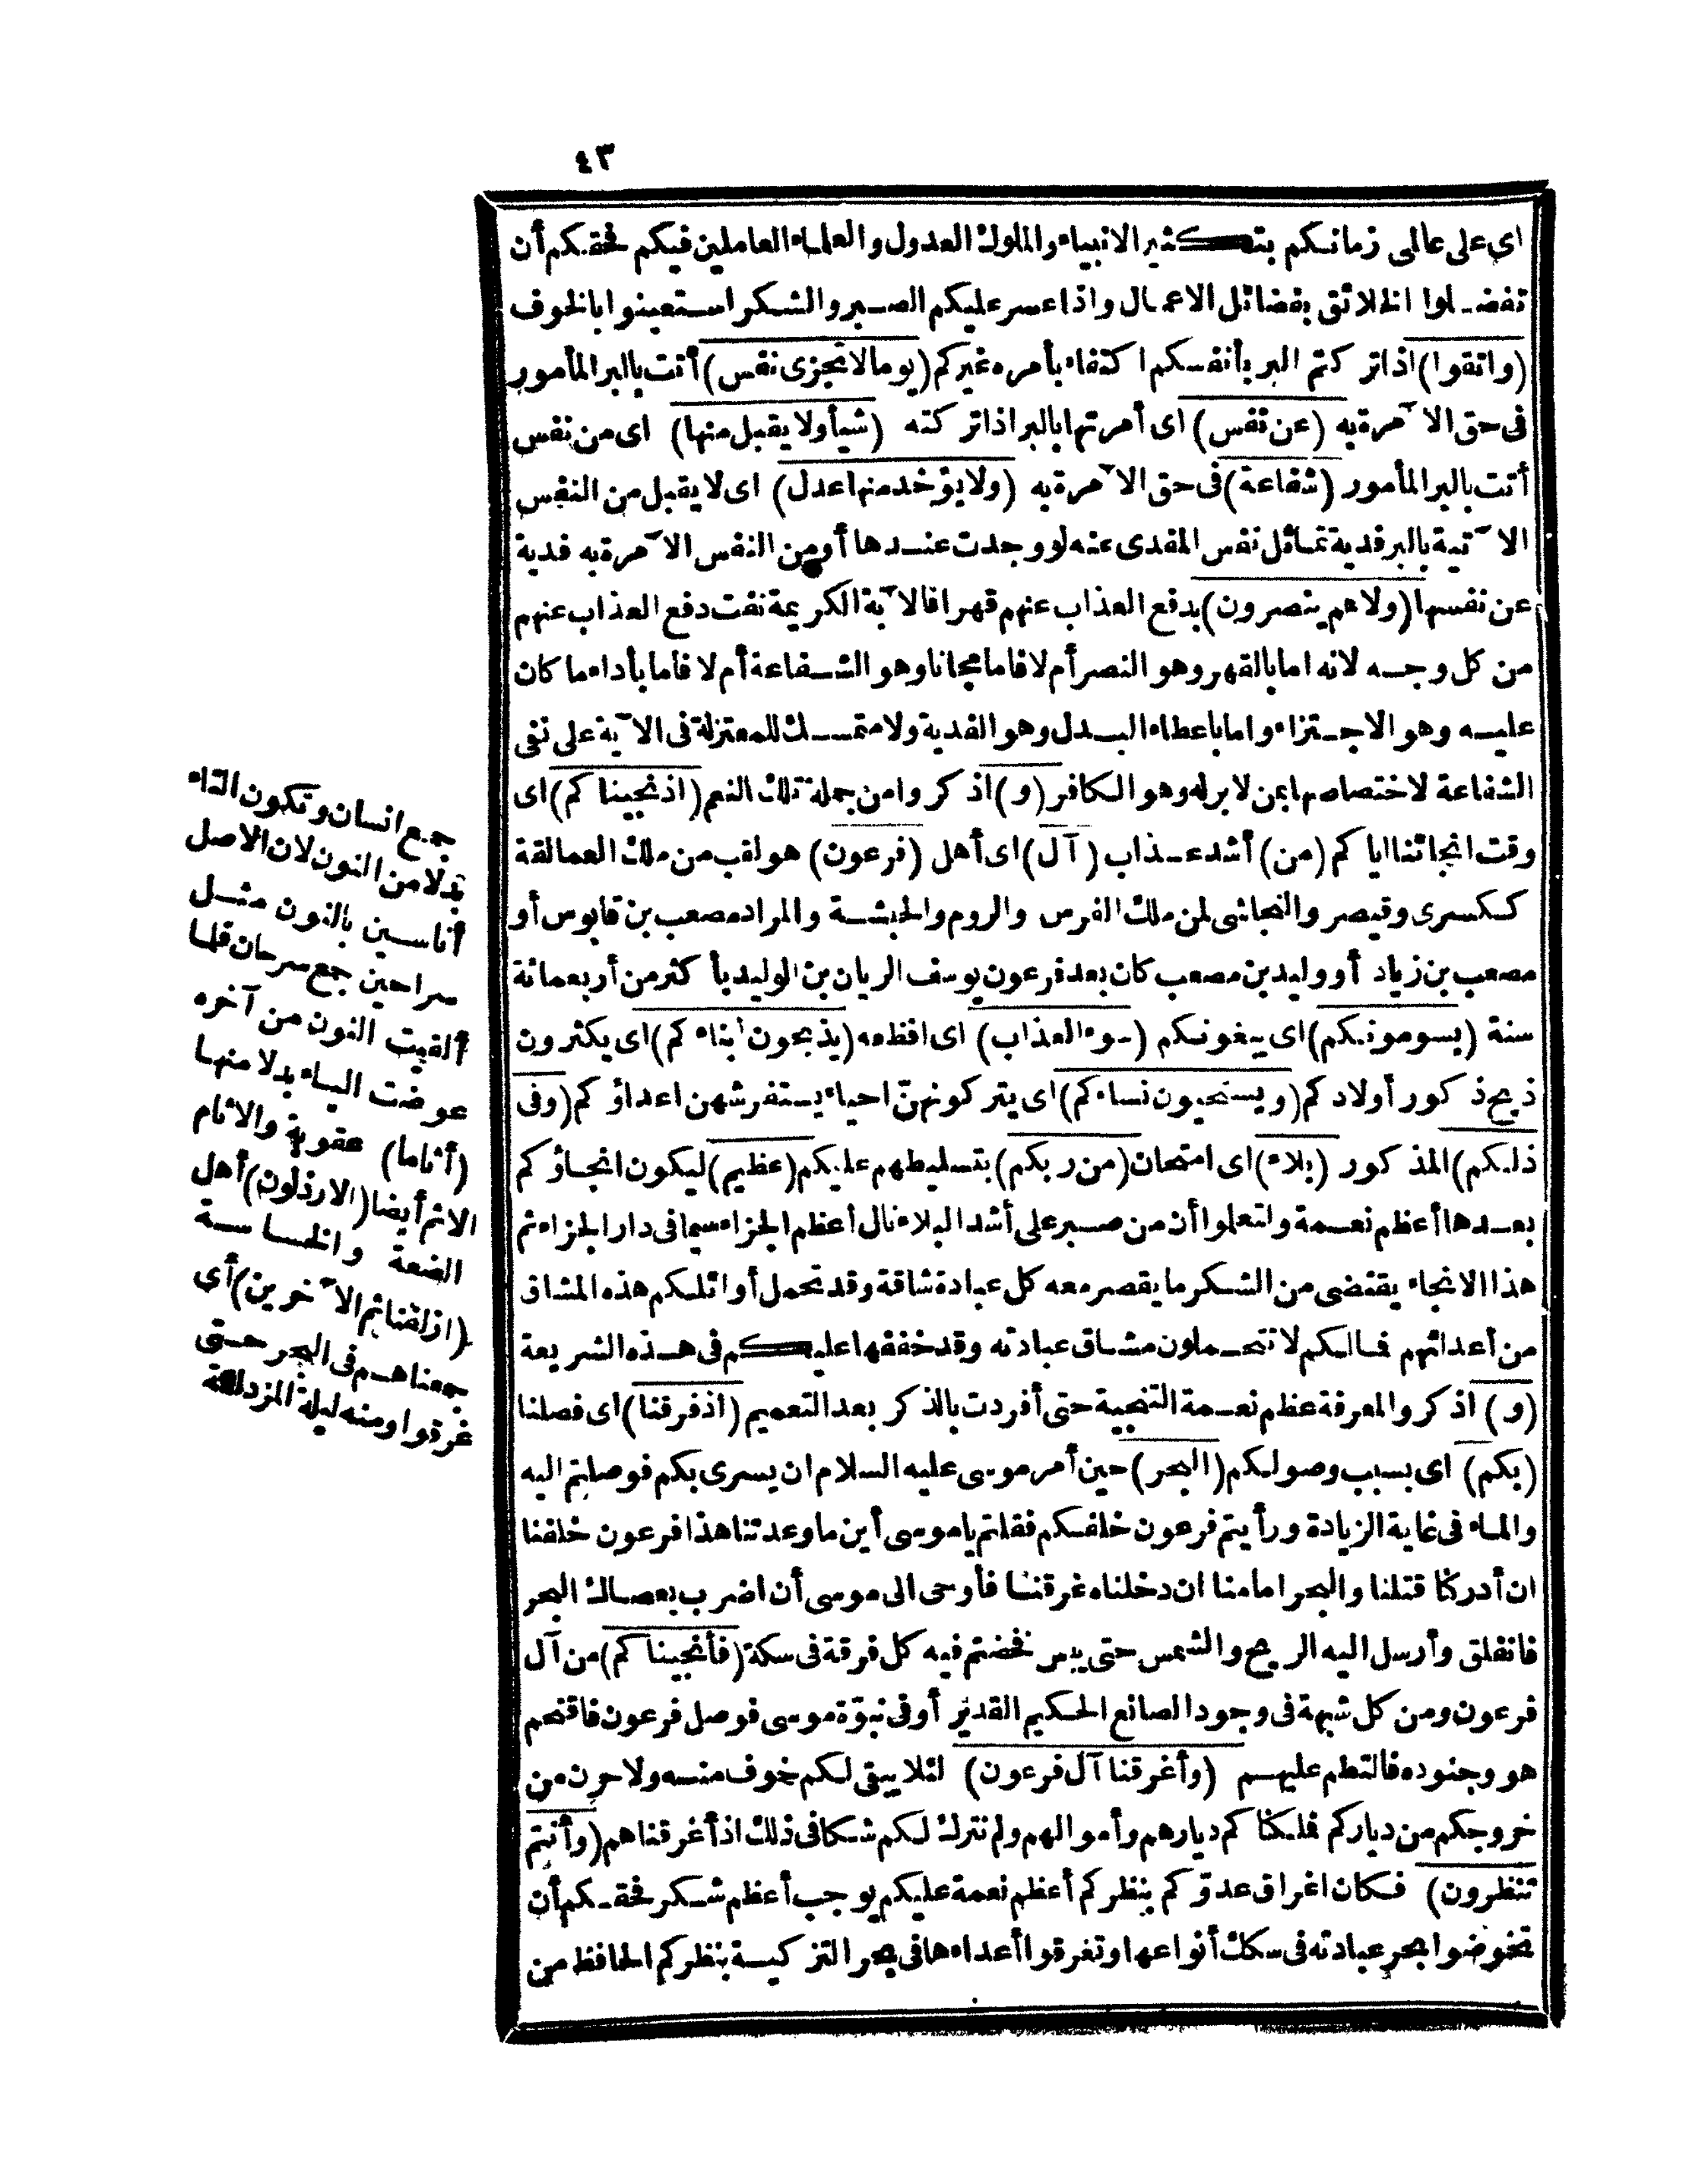 ٤٣
اى على عالمى زمانكم بتكثير الانبياء والملوك العدول والعلماء العاملين فيكم فحقكم أن
تفضلوا الخلائق بفضائل الاعمال واذا عسر عليكم الصبر والشكر استعينوا بالخوف
(واتقوا) اذا تركتم البر بأنفسكم اكتفاء بأمره غيركم (يوما لا تجزى نفس) أتت بالبر المأمور
فى حق الآمرة به (عن نفس) اى أمرتها بالبر اذا تركته (شيأ ولا يقبل منها) اى من نفس
أتت بالبر المأمور (شفاعة) فى حق الآمرة به (ولا يؤخذ منها عدل) اى لا يقبل من النفس
الآتية بالبر فدية تماثل نفس المفدى عنه لو وجدت عندها أو من النفس الآمرة به فدية
عن نفسها (ولا هم ينصرون) بدفع العذاب عنهم قهرا فالآية الكريمة نفت دفع العذاب عنهم
من كل وجه لانه اما بالقهر وهو النصر أم لا فاما مجانا وهو الشفاعة أم لا فاما بأداء ما كان
عليه وهو الاجتزاء واما باعطاء البدل وهو الفدية ولا متمسك للمعتزلة فى الآية على نفى
الشفاعة لاختصاصها بمن لا بر له وهو الكافر (و) اذكروا من جملة تلك النعم (اذ نجيناكم) اى
وقت انجائنا اياكم (من) أشد عذاب (آل) اى أهل (فرعون) هو لقب من ملك العمالقة
ككسرى وقيصر والنجاشى لمن ملك الفرس والروم والحبشة والمراد مصعب بن قابوس أو
مصعب بن زياد أو وليد بن مصعب كان بعد فرعون يوسف الريان بن الوليد بأكثر من أربعمائة
سنة (يسومونكم) اى يبغونكم (سوء العذاب) اى افظعه (يذبحون أبناءكم) اى يكثرون
ذبح ذكور أولادكم (ويستحيون نساءكم) اى يتركونهنّ احياء يستفرشهن اعداؤكم (وفى
ذلكم) المذكور (بلاء) اى امتحان (من ربكم) بتسليطهم عليكم (عظيم) ليكون انجاؤكم
بعدها أعظم نعمة ولتعلموا أن من صبر على أشد البلاء نال أعظم الجزاء سيما فى دار الجزاء ثم
هذا الانجاء يقتضى من الشكر ما يقصر معه كل عبادة شاقة وقد تحمل أوائلكم هذه المشاق
من أعدائهم فمالكم لا تتحملون مشاق عبادته وقد خففها عليكم فى هذه الشريعة
(و) اذكروا لمعرفة عظم نعمة التنجية حتى أفردت بالذكر بعد التعميم (اذ فرقنا) اى فصلنا
(بكم) اى بسبب وصولكم (البحر) حين أمر موسى عليه السلام ان يسرى بكم فوصلتم اليه
والماء فى غاية الزيادة ورأيتم فرعون خلفكم فقلتم يا موسى أين ما وعدتنا هذا فرعون خلفنا
ان أدركنا قتلنا والبحر امامنا ان دخلناه غرقنا فأوحى الى موسى أن اضرب بعصاك البحر
فانفلق وأرسل اليه الريح والشمس حتى يبس فخضتم فيه كل فرقة فى سكة (فأنجيناكم) من آل
فرعون ومن كل شبهة فى وجود الصانع الحكيم القدير أو فى نبوّة موسى فوصل فرعون فاقتحم
هو وجنوده فالتطم عليهم (وأغرقنا آل فرعون) لئلا يبقى لكم خوف منه ولا حزن من
خروجكم من دياركم فملكناكم ديارهم وأموالهم ولم نترك لكم شكا فى ذلك اذ أغرقناهم (وأنتم
تنظرون) فكان اغراق عدوّكم بنظركم أعظم نعمة عليكم يوجب أعظم شكر فحقكم أن
تخوضوا بحر عبادته فى سكك أنواعها وتغرقوا أعداءها فى بحر التزكية بنظركم الحافظ من
جمع انسان وتكون التاء
بدلا من النون لان الاصل
أناسين بالنون مثل
سراحين جمع سرحان فلما
ألقيت النون من آخره
عوضت الياء بدلا منها
(أثاما) عقوبة والاثام
الاثم أيضا (الارذلون) أهل
الضعة والخساسة
(ازلفنا ثم الآخرين) أى
جمعناهم فى البحر حتى
غرقوا ومنه ليلة المزدلفة